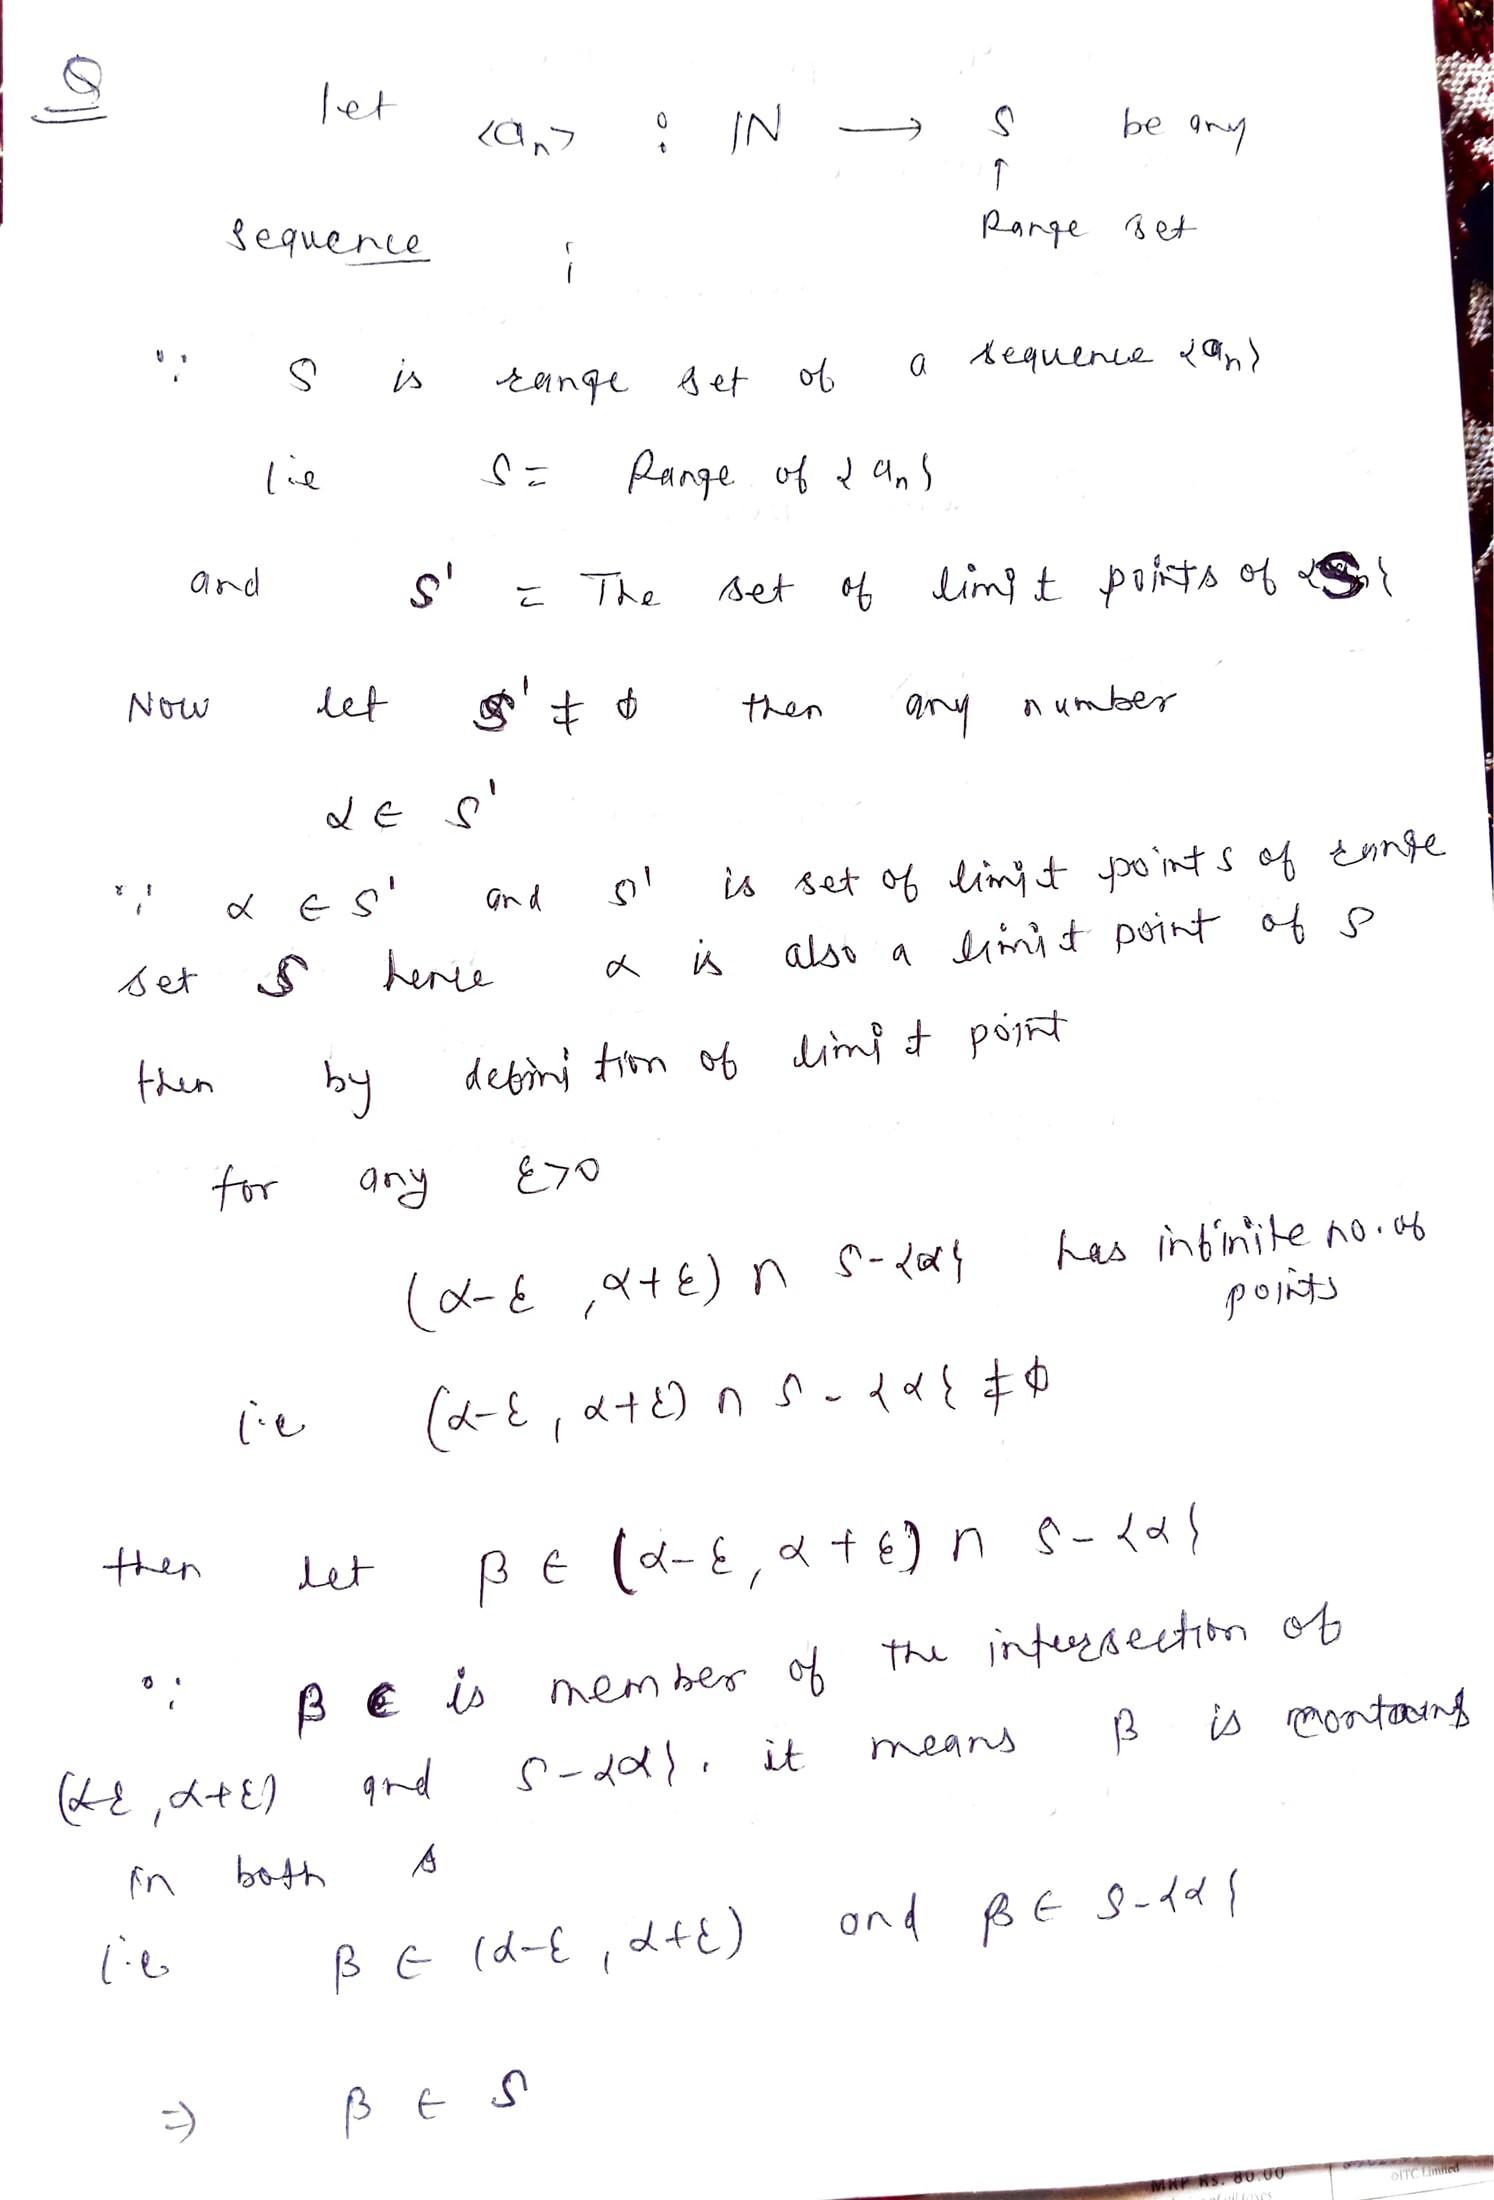 Q let <an> : IN → S be any
↑
Range set
sequence ;
∵ S is range set of a sequence {an}
i.e S = Range of {an}
and S' = The set of limit points of {S}
Now let S' ≠ ϕ then any number
α ∈ S'
∵ α ∈ S' and S' is set of limit points of range
set S hence α is also a limit point of S
then by definition of limit point
for any ε>0
(α-ε , α+ε) ∩ S-{α} has infinite no. of
points
i.e (α-ε , α+ε) ∩ S-{α} ≠ ϕ
then let β ∈ (α-ε, α+ε) ∩ S-{α}
∵ β ∈ is member of the intersection of
(α-ε , α+ε) and S-{α}. it means β is
in both
i.e β ∈ (α-ε , α+ε) and β ∈ S-{α}
⇒ β ∈ S
MRP Rs. 80.00
©ITC Limited